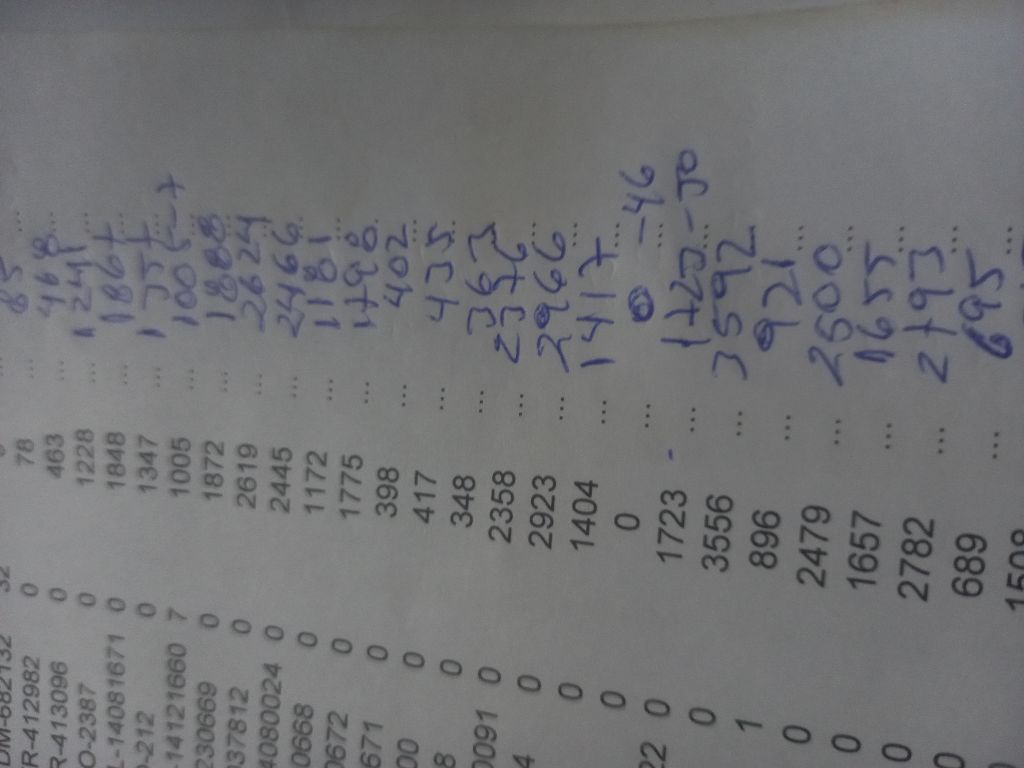 DM-682132 32
R-412982 0 78 ... 85 ...
R-413096 0 463 ... 468 ...
O-2387 0 1228 ... 1241 ...
L-14081671 0 1848 ... 1867 ...
-212 0 1347 ... 1357 ...
-14121660 7 1005 ... 1005 -7
230669 0 1872 ... 1888 ...
37812 0 2619 ... 2624 ...
4080024 0 2445 ... 2466 ...
0668 0 1172 ... 1181 ...
0672 0 1775 ... 1798 ...
671 0 398 ... 402 ...
00 0 417 ... 435 ...
8 0 348 ... 363 ...
0091 0 2358 ... 2376 ...
4 0 2923 ... 2966 ...
0 1404 ... 1417 ...
0 0 ... 0 -46
22 0 1723 ... 1723 -30
0 3556 ... 3592
1 896 ... 921 ...
0 2479 ... 2500 ...
0 1657 ... 1655 ...
0 2782 ... 2793 ...
0 689 ... 695 ...
1508